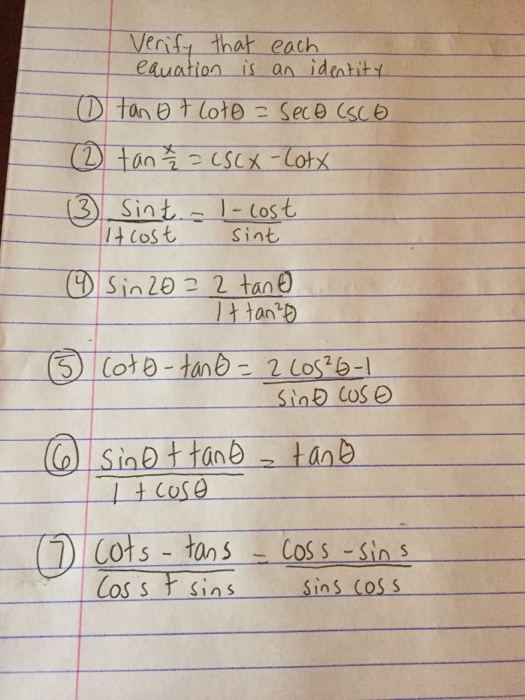 Verify that each
equation is an identity
① tan θ + cot θ = sec θ csc θ
② tan x/2 = csc x - cot x
③ sin t / 1 + cos t = 1 - cos t / sin t
④ sin 2θ = 2 tan θ / 1 + tan²θ
⑤ cot θ - tan θ = 2 cos²θ - 1 / sin θ cos θ
⑥ sin θ + tan θ / 1 + cos θ = tan θ
⑦ cot s - tan s / cos s + sin s = cos s - sin s / sin s cos s